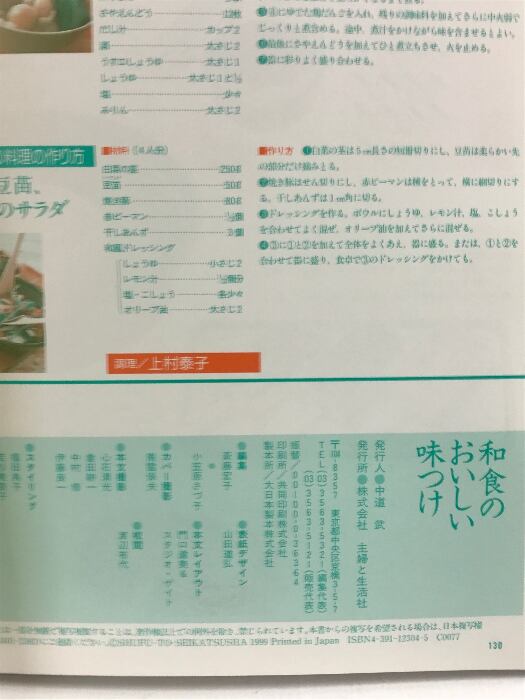 さやえんどう 12枚
だし汁 カップ2
酒 太さじ2
うす口しょうゆ 太さじ1
しょうゆ 太さじ1と½
塩 少々
みりん 太さじ2
⑤にゆでた鶏だんごを入れ、残りの調味料を加えてさらに中火弱で
じっくりと煮含める。途中、煮汁をかけながら味を含ませるとよい。
⑥最後にさやえんどうを加えてひと煮立ちさせ、火を止める。
⑦器に彩りよく盛り合わせる。
料理の作り方
豆苗、
のサラダ
■材料(4人分)
白菜の茎 250g
豆苗 50g
焼き豚 80g
赤ピーマン
干しあんず
和風ドレッシング
しょうゆ 小さじ2
レモン汁
塩・こしょう 各少々
オリーブ油 太さじ2
■作り方 ①白菜の茎は5cm長さの短冊切りにし、豆苗は柔らかい先
の部分だけ摘みとる。
②焼き豚はせん切りにし、赤ピーマンは種をとって、横に細切りにす
る。干しあんずは1cm角に切る。
③ドレッシングを作る。ボウルにしょうゆ、レモン汁、塩、こしょう
を合わせてよく混ぜ、オリーブ油を加えてさらに混ぜる。
④③に①と②を加えて全体をよくあえ、器に盛る。または、①と②を
合わせて器に盛り、食卓で③のドレッシングをかけても。
調理/上村泰子
和食の
おいしい
味つけ
発行人●中道 武
発行所●株式会社 主婦と生活社
〒104-8357 東京都中央区京橋3-5-7
TEL(03)3563-5321(編集代表)
(03)3563-5121(販売代表)
振替/00100-0-36364
印刷所/共同印刷株式会社
製本所/大日本製本株式会社
●編集
斎藤宏子
小笠原さづ子
●カバー撮影
●本文撮影
●スタイリング
●表紙デザイン
山田道弘
●本文レイアウト
スタジオ・ケイト
●校閲
SHUFU-TO-SEIKATSUSHA 1999 Printed in Japan ISBN4-391-12304-5 C0077
130